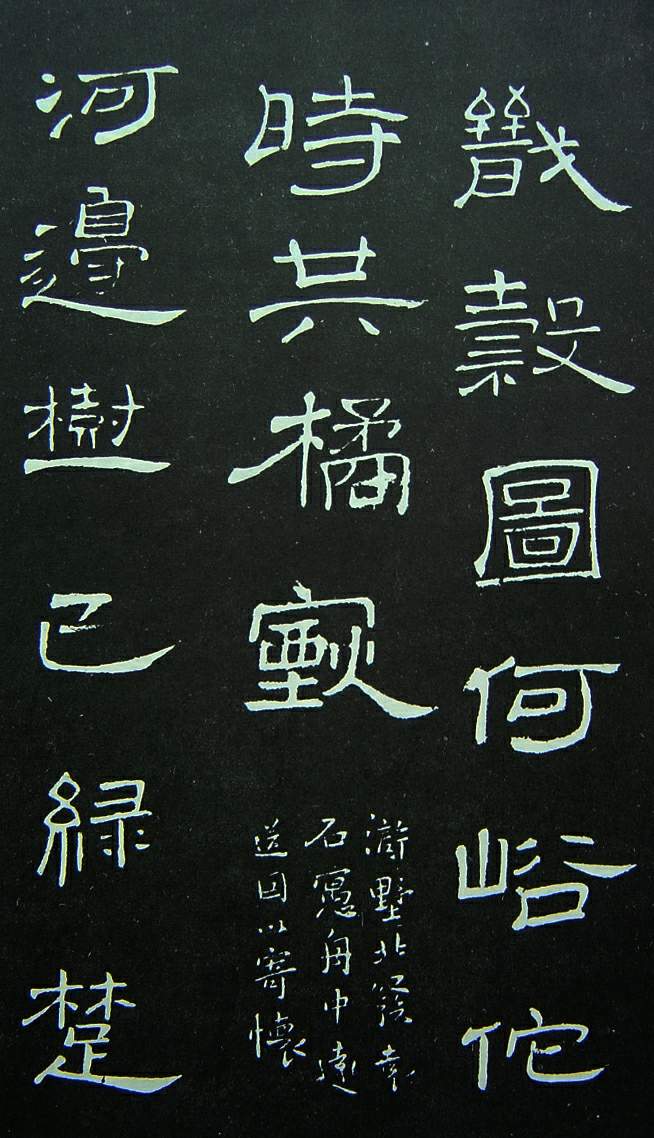 圖何峪佗
時共橘
滸墅北發袁
石窻舟中遠
送因以寄懷
河邊樹已綠楚